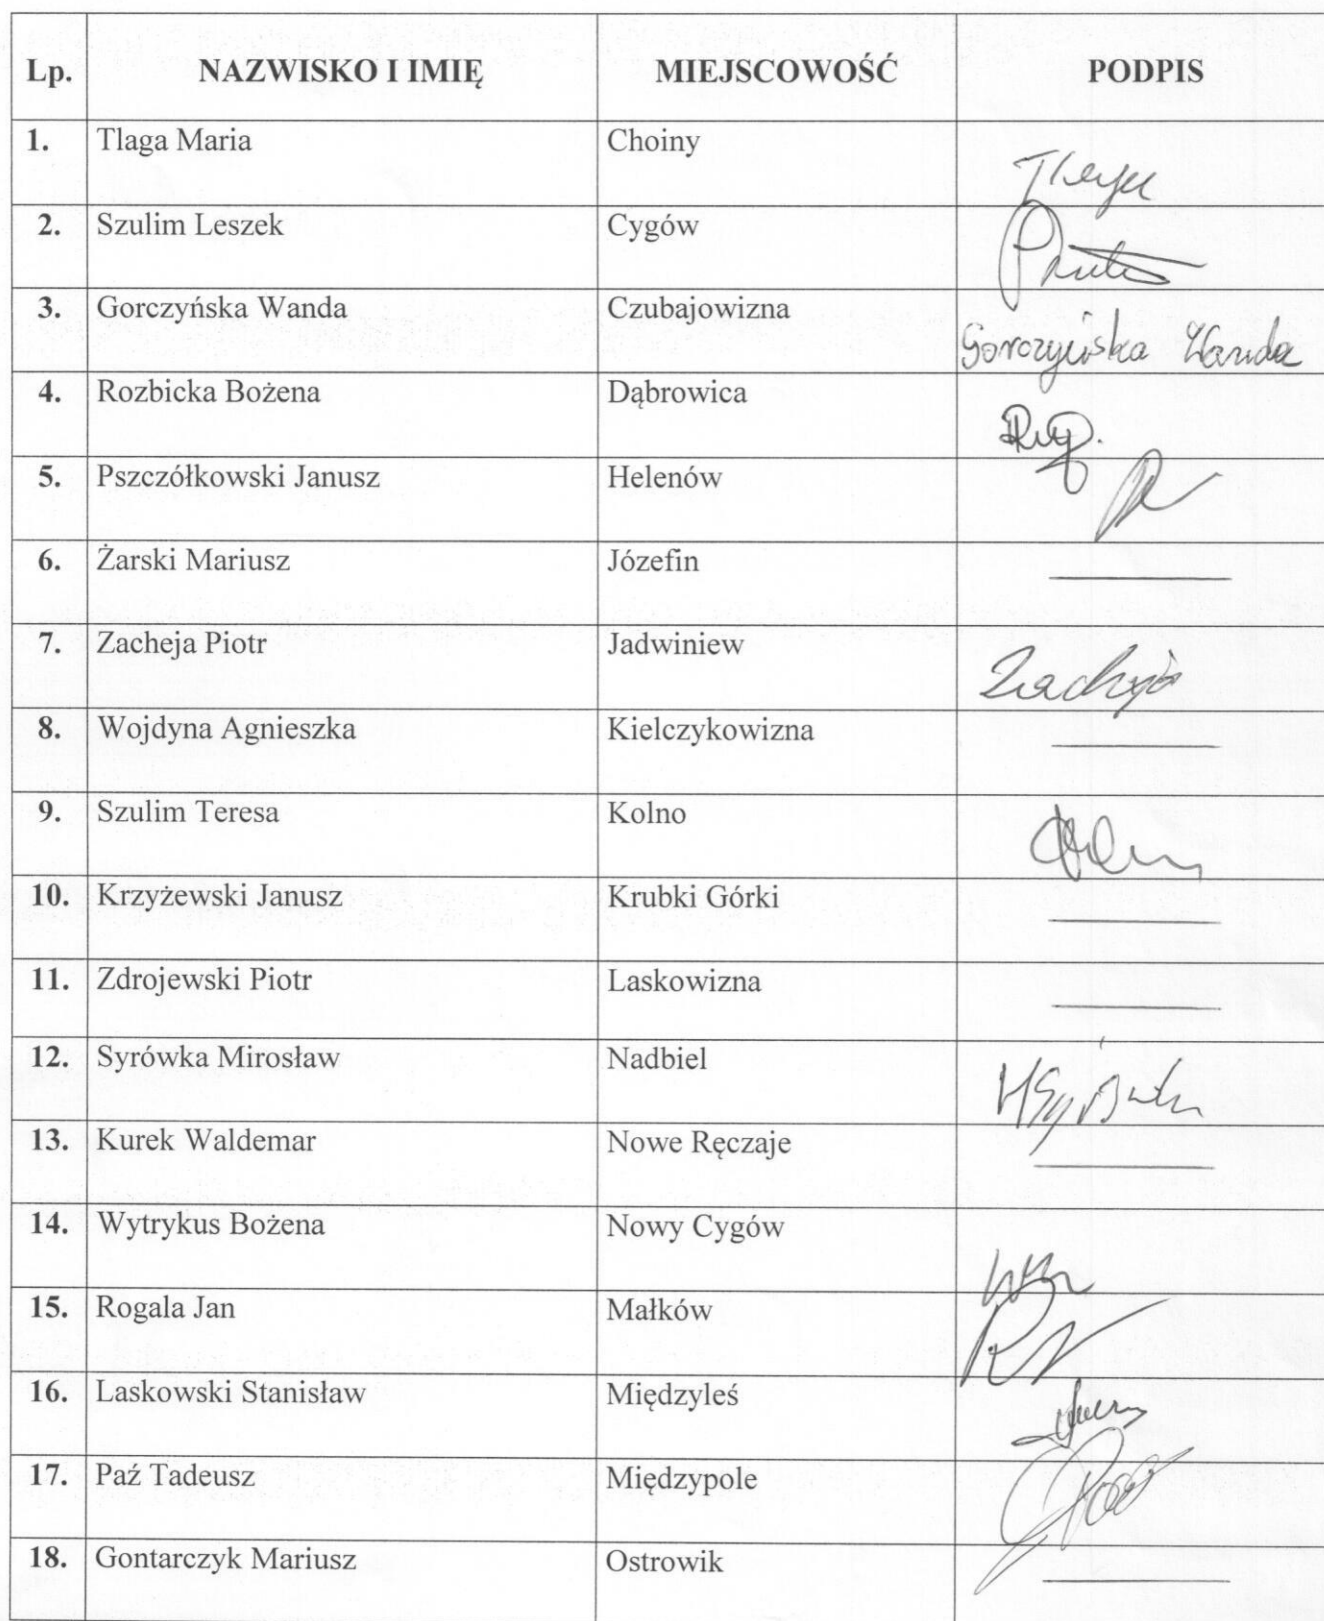 Lp. NAZWISKO I IMIĘ MIEJSCOWOŚĆ PODPIS
1. Tlaga Maria Choiny
2. Szulim Leszek Cygów
3. Gorczyńska Wanda Czubajowizna Gorczyńska Wanda
4. Rozbicka Bożena Dąbrowica
5. Pszczółkowski Janusz Helenów
6. Żarski Mariusz Józefin
7. Zacheja Piotr Jadwiniew Zacheja
8. Wojdyna Agnieszka Kielczykowizna
9. Szulim Teresa Kolno
10. Krzyżewski Janusz Krubki Górki
11. Zdrojewski Piotr Laskowizna
12. Syrówka Mirosław Nadbiel
13. Kurek Waldemar Nowe Ręczaje
14. Wytrykus Bożena Nowy Cygów
15. Rogala Jan Małków
16. Laskowski Stanisław Międzyleś
17. Paź Tadeusz Międzypole
18. Gontarczyk Mariusz Ostrowik